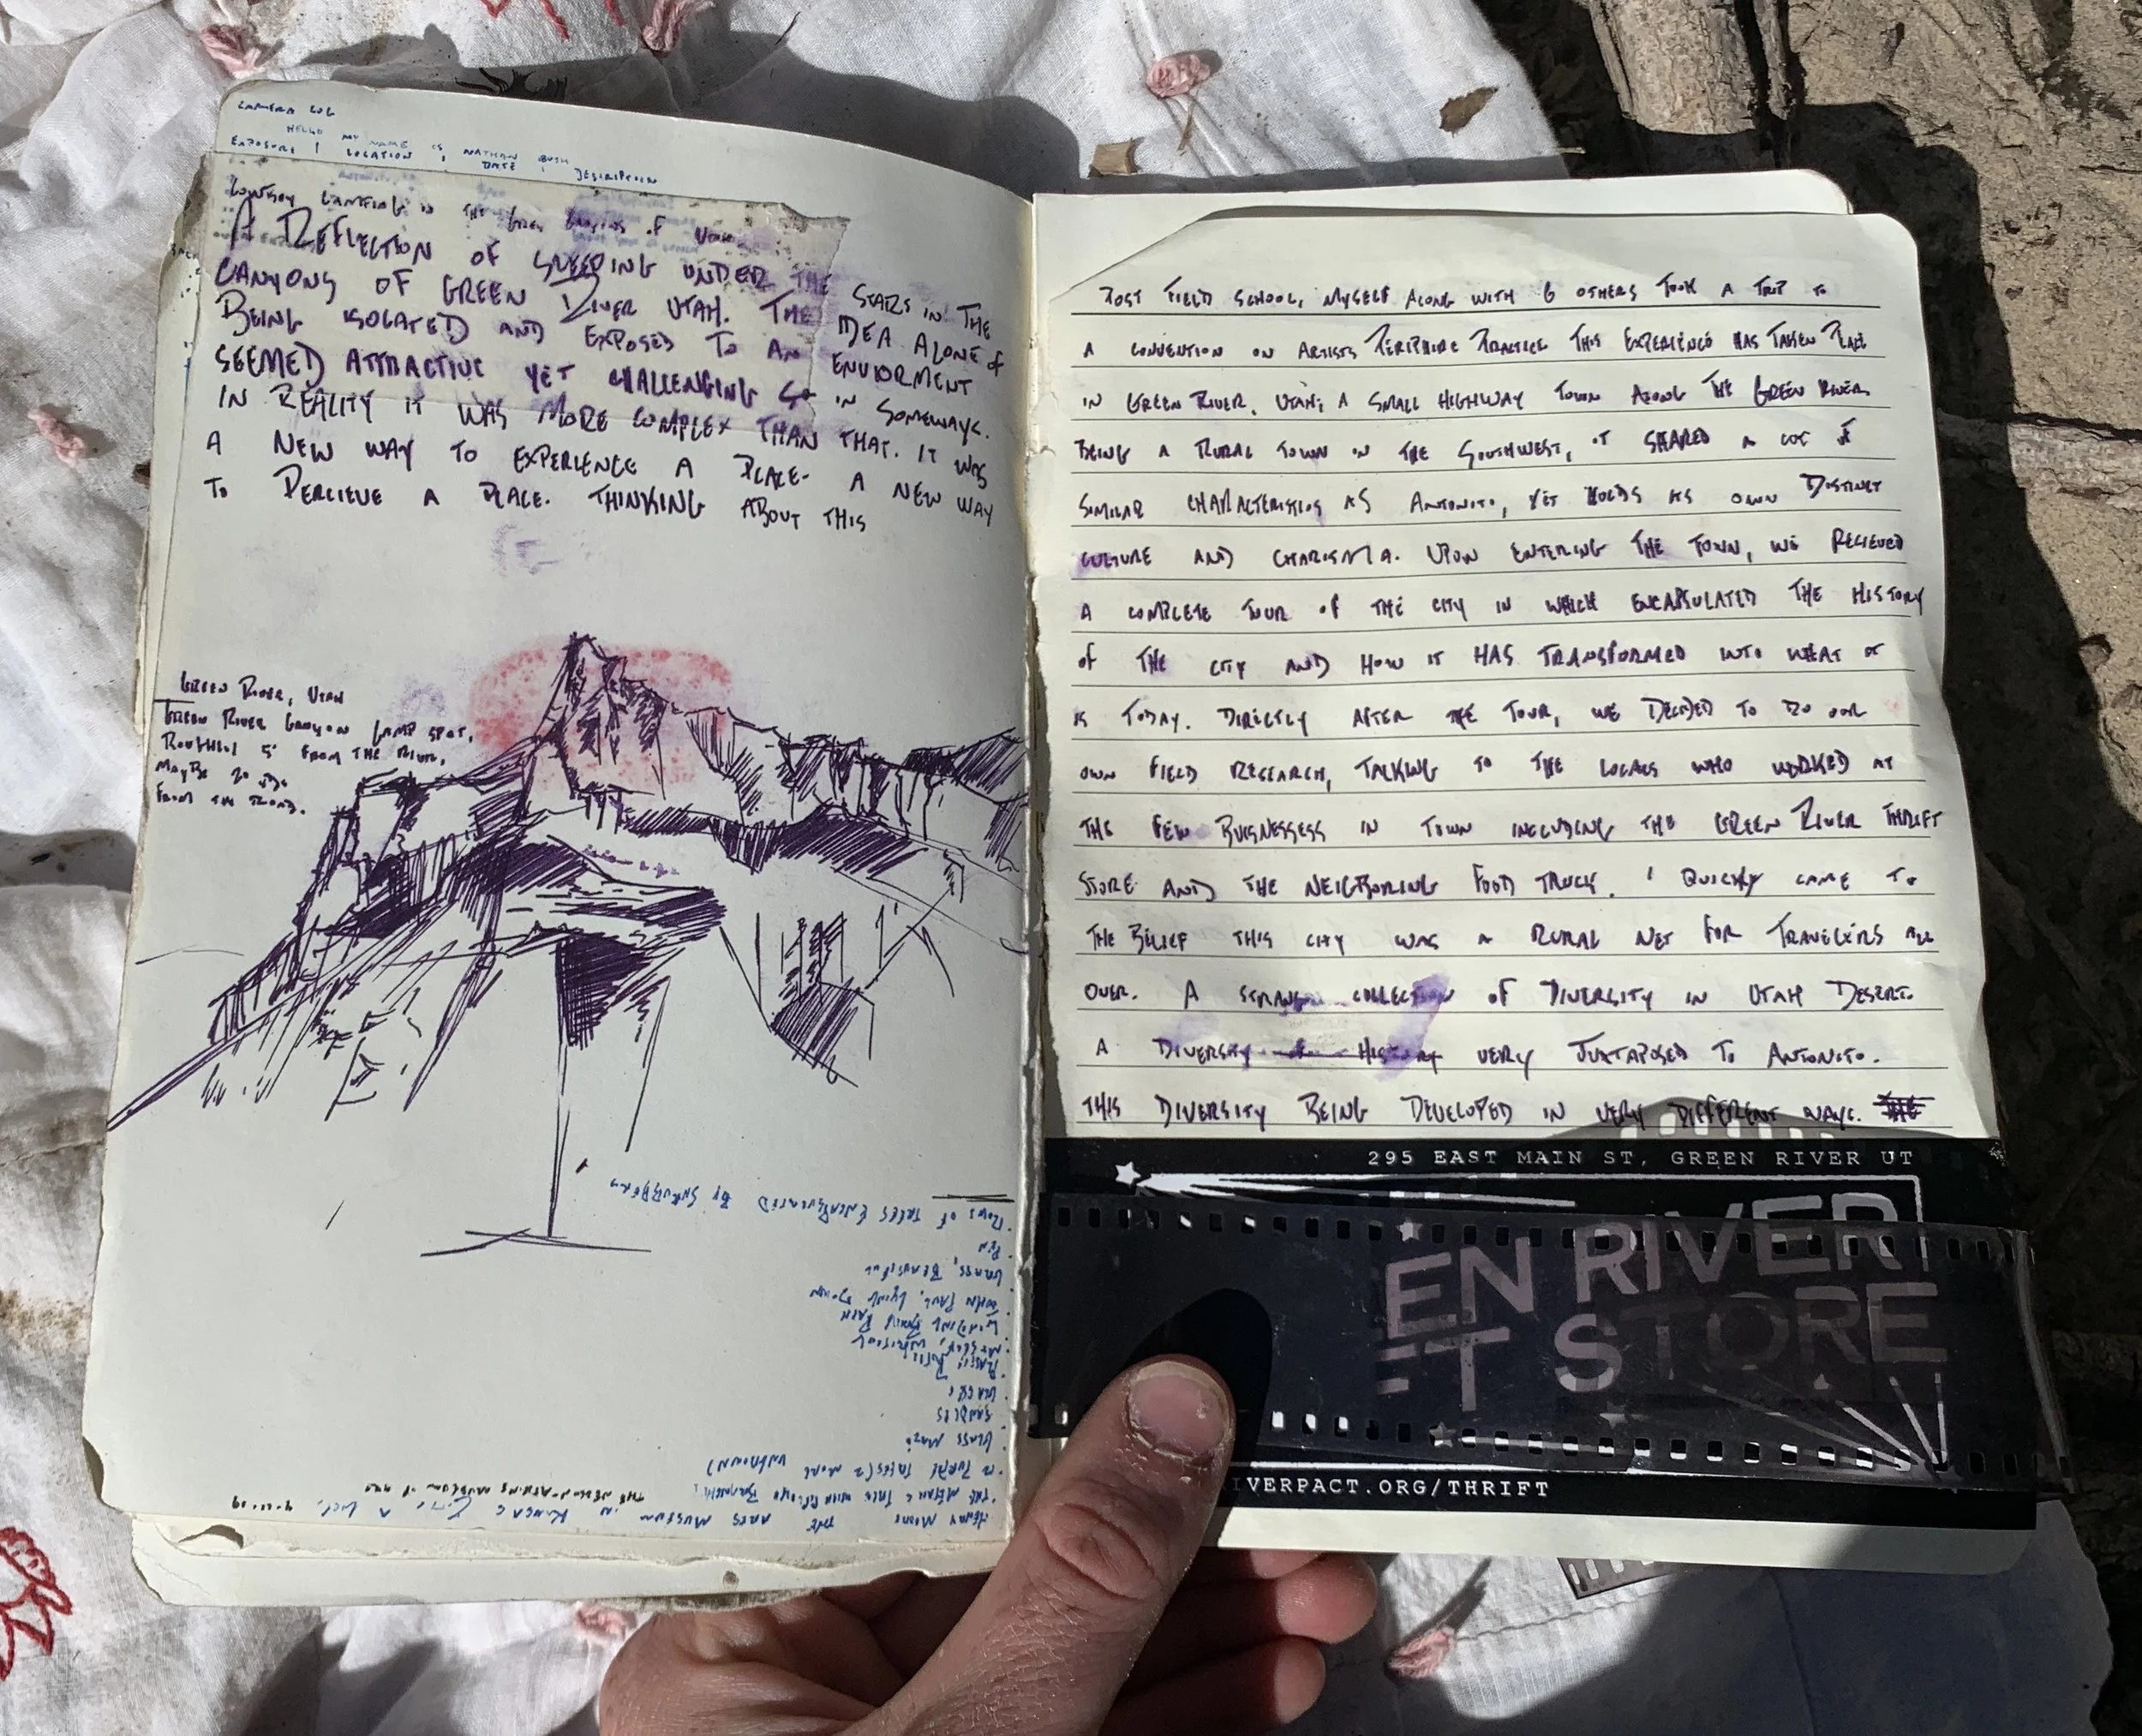 CAMERA LOG
HELLO MY NAME IS NATHAN BUSH
EXPOSURE | LOCATION | DATE | DESCRIPTION
COWBOY CAMPING IN THE GREEN CANYONS OF UTAH
A REFLECTION OF SLEEPING UNDER THE STARS IN THE
CANYONS OF GREEN RIVER UTAH. THE IDEA ALONE OF
BEING ISOLATED AND EXPOSED TO AN ENVIORMENT
SEEMED ATTRACTIVE YET CHALLENGING IN SOMEWAYS.
IN REALITY IT WAS MORE COMPLEX THAN THAT. IT WAS
A NEW WAY TO EXPERIENCE A PLACE. A NEW WAY
TO PERCIEVE A PLACE. THINKING ABOUT THIS
GREEN RIVER, UTAH
GREEN RIVER CANYON CAMP SPOT,
ROUGHLY 5' FROM THE RIVER,
MAYBE 20
FROM THE ROAD.
ROWS OF TREES ENCAPSULATED BY SHRUBBERY
GRASS, BEAUTIFUL
JOHN PAUL, LYING DOWN
WINDING BRICK PATH
GLASS MAZE
12 PURPLE TREES (2 MORE UNKNOWN)
THE METALIC TREE WITH
HENRY MOORE THE ARTS MUSEUM IN KANSAS CITY
THE NELSON-ATKINS MUSEUM OF ART
POST FIELD SCHOOL, MYSELF ALONG WITH 6 OTHERS TOOK A TRIP TO
A CONVENTION ON ARTISTS PERIPHIRE PRACTICE THIS EXPERIENCE HAS TAKEN PLACE
IN GREEN RIVER, UTAH; A SMALL HIGHWAY TOWN ALONG THE GREEN RIVER
BEING A RURAL TOWN IN THE SOUTHWEST, IT SHARED A LOT OF
SIMILAR CHARACTERISTICS AS ANTONITO, YET HOLDS ITS OWN DISTINCT
CULTURE AND CHARISMA. UPON ENTERING THE TOWN, WE RECIEVED
A COMPLETE TOUR OF THE CITY IN WHICH ENCAPSULATED THE HISTORY
OF THE CITY AND HOW IT HAS TRANSFORMED INTO WHAT IT
IS TODAY. DIRECTLY AFTER THE TOUR, WE DECIDED TO DO OUR
OWN FIELD RESEARCH, TALKING TO THE LOCALS WHO WORKED AT
THE FEW BUISNESSESS IN TOWN INCLUDING THE GREEN RIVER THRIFT
STORE AND THE NEIGHBORING FOOD TRUCK. I QUICKLY CAME TO
THE BELIEF THIS CITY WAS A RURAL NET FOR TRAVELERS ALL
OVER. A STRANGE COLLECTION OF DIVERSITY IN UTAH DESERT.
A DIVERSITY OF HISTORY VERY JUXTAPOSED TO ANTONITO.
THIS DIVERSITY BEING DEVELOPED IN VERY DIFFERENT WAYS. THE
295 EAST MAIN ST, GREEN RIVER UT
EN RIVER
T STORE
IVERPACT.ORG/THRIFT